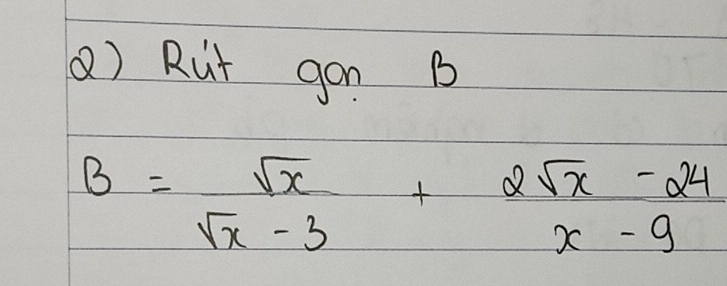 2) Rút gọn B
B = √x / (√x - 3) + (2√x - 24) / (x - 9)